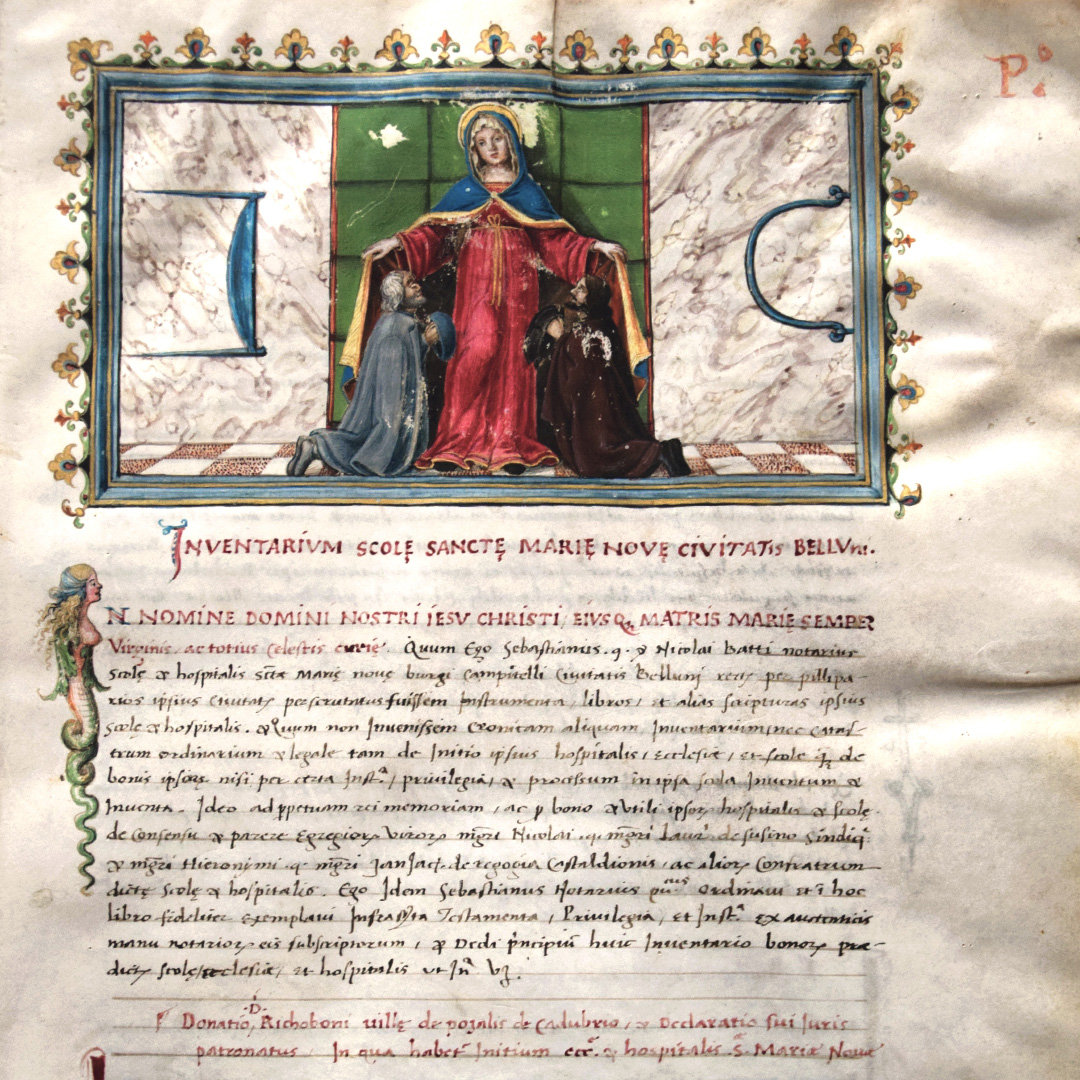 P.º
INVENTARIVM SCOLĘ SANCTĘ MARIĘ NOVĘ CIVITATIS BELLVNI.
IN NOMINE DOMINI NOSTRI IESV CHRISTI, EIVSQ; MATRIS MARIĘ SEMPER
Virginis, ac totius Celestis curię. Quum Ego Sebastianus .q. & Nicolai Batti notarius
scolę & hospitalis sctæ Marię nouę burgi Campitelli Ciuitatis Belluni
ipsius perscrutatus fuissem Instrumenta, libros, et alias scripturas ipsius
scolę & hospitalis. & Quum non Inuenissem Cronicam aliquam Inuentarium, nec Catas-
trum ordinarium & legale tam de Initio ipsius hospitalis, Ecclesiæ, et scole de
bonis nisi per certa Inst.ª, priuilegia, & processum in ipsa scola Inuentum &
Inuenta. Ideo ad ppetuam rei memoriam, ac p bono & vtili hospitalis & scolę
de Consensu & parere Nicolai .q. mgri de susino
& mgri Hieronymi .q. mgri Castaldionis, ac Confratrum
dictę Scolę & hospitalis. Ego Idem Sebastianus Notarius Ordinaui et i hoc
libro fideliter exemplaui Testamenta, Priuilegia, et Inst.ª ex autenticis
manu subscriptorum, & Dedi huic Inuentario præ-
scolę, ecclesiæ, et hospitalis vt
Donatio .D. Richoboni uillę de pozalis de Cadubrio, & Declaratio sui Iuris
patronatus. In qua habet Initium & hospitalis S. Marie Nouæ